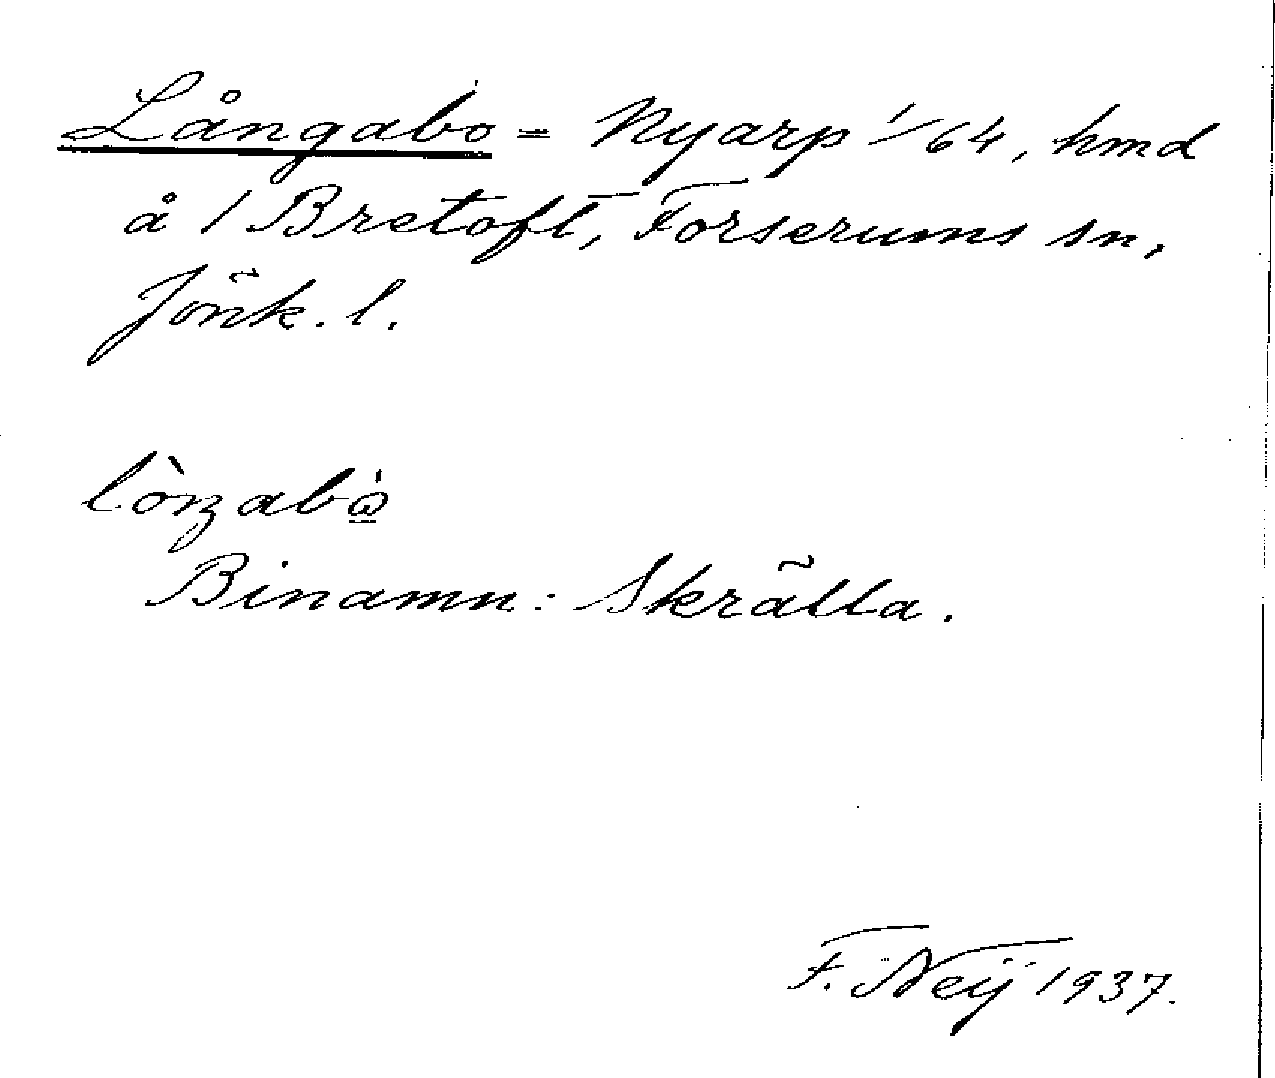 Långabo = Nyarp 1/64, hmd
å 1 Bretoft, Forserums sn,
Jönk. l.
Binamn: Skrälla.
F. Neij 1937.